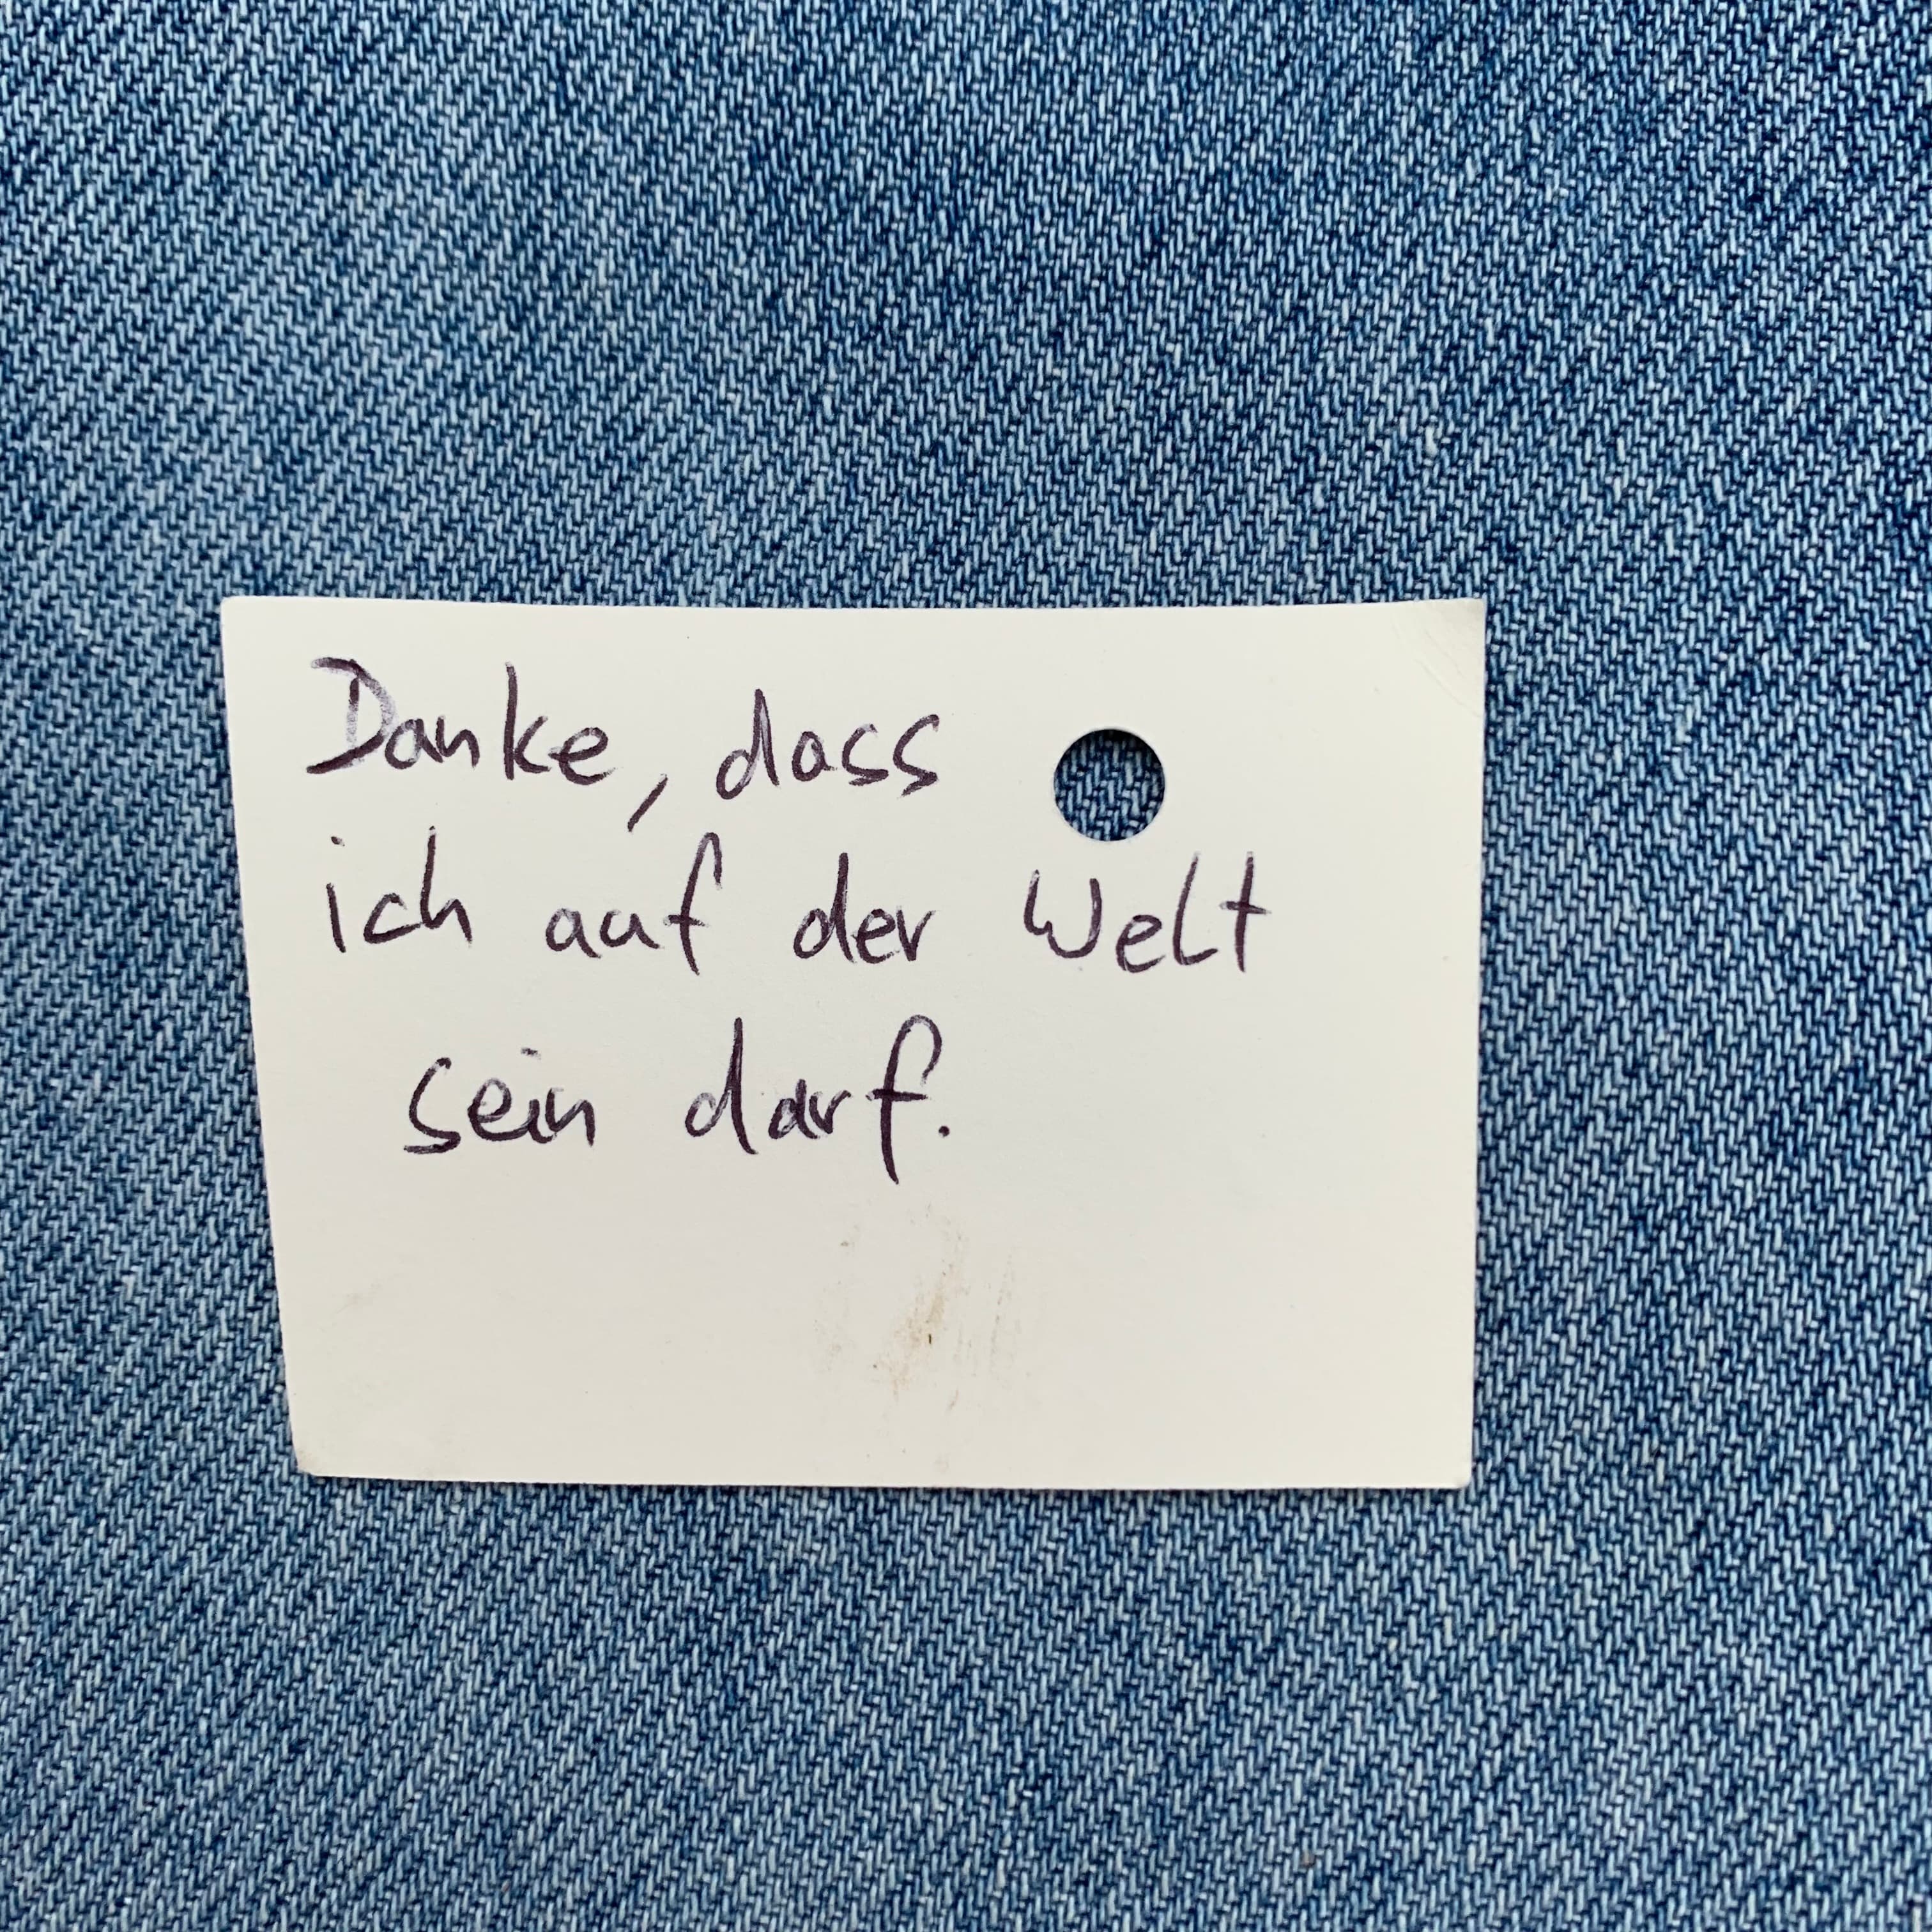 Danke, dass
ich auf der Welt
sein darf.